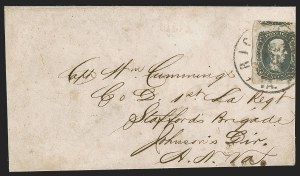 Capt Wm Cumming
Co D 1st La Regt
Staffords Brigade
Johnson's Div.
A. N. Va.
RIC
VA.